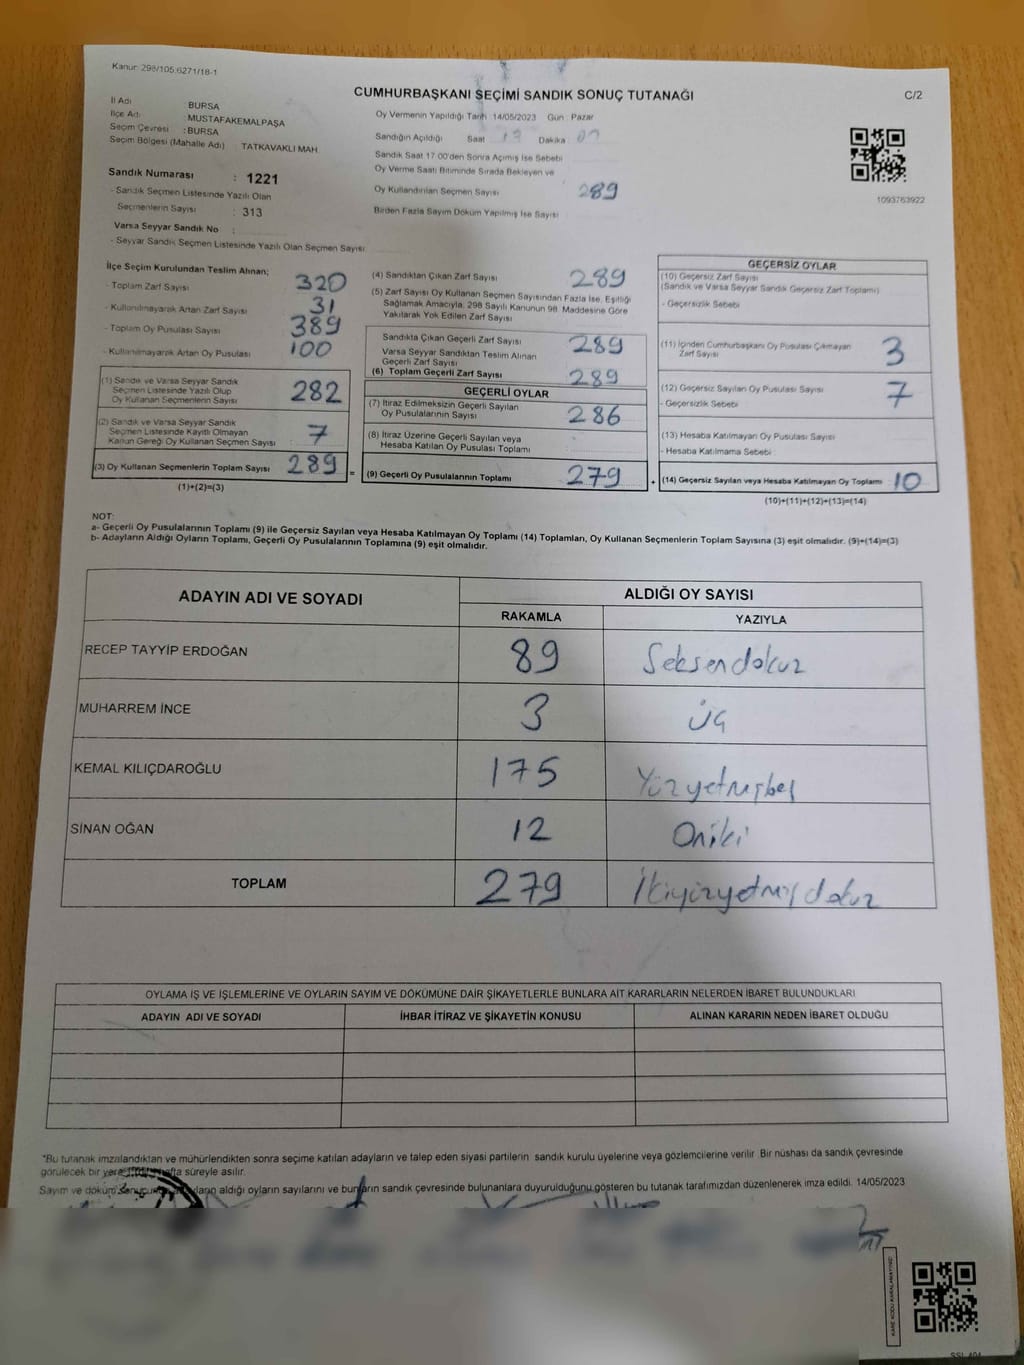 Kanun: 298/105,6271/18-1
CUMHURBAŞKANI SEÇİMİ SANDIK SONUÇ TUTANAĞI
C/2
İl Adı BURSA
İlçe Adı MUSTAFAKEMALPAŞA
Seçim Çevresi : BURSA
Seçim Bölgesi (Mahalle Adı) TATKAVAKLI MAH.
Sandık Numarası : 1221
- Sandık Seçmen Listesinde Yazılı Olan
Seçmenlerin Sayısı : 313
Varsa Seyyar Sandık No :
- Seyyar Sandık Seçmen Listesinde Yazılı Olan Seçmen Sayısı
Oy Vermenin Yapıldığı Tarih 14/05/2023 Gün : Pazar
Sandığın Açıldığı Saat Dakika
Sandık Saat 17.00'den Sonra Açılmış İse Sebebi
Oy Verme Saati Bitiminde Sırada Bekleyen ve
Oy Kullandırılan Seçmen Sayısı 289
Birden Fazla Sayım Döküm Yapılmış İse Sayısı
1093763922
İlçe Seçim Kurulundan Teslim Alınan;
- Toplam Zarf Sayısı 320
- Kullanılmayarak Artan Zarf Sayısı 31
- Toplam Oy Pusulası Sayısı 389
- Kullanılmayarak Artan Oy Pusulası 100
(1) Sandık ve Varsa Seyyar Sandık
Seçmen Listesinde Yazılı Olup
Oy Kullanan Seçmenlerin Sayısı 282
(2) Sandık ve Varsa Seyyar Sandık
Seçmen Listesinde Kayıtlı Olmayan
Kanun Gereği Oy Kullanan Seçmen Sayısı : 7
(3) Oy Kullanan Seçmenlerin Toplam Sayısı 289
(1)+(2)=(3)
=
(4) Sandıktan Çıkan Zarf Sayısı 289
(5) Zarf Sayısı Oy Kullanan Seçmen Sayısından Fazla İse, Eşitliği
Sağlamak Amacıyla, 298 Sayılı Kanunun 98. Maddesine Göre
Yakılarak Yok Edilen Zarf Sayısı
Sandıkta Çıkan Geçerli Zarf Sayısı 289
Varsa Seyyar Sandıktan Teslim Alınan
Geçerli Zarf Sayısı
(6) Toplam Geçerli Zarf Sayısı 289
GEÇERLİ OYLAR
(7) İtiraz Edilmeksizin Geçerli Sayılan
Oy Pusulalarının Sayısı : 286
(8) İtiraz Üzerine Geçerli Sayılan veya
Hesaba Katılan Oy Pusulası Toplamı :
(9) Geçerli Oy Pusulalarının Toplamı 279
+
GEÇERSİZ OYLAR
(10) Geçersiz Zarf Sayısı
(Sandık ve Varsa Seyyar Sandık Geçersiz Zarf Toplamı)
- Geçersizlik Sebebi
(11) İçinden Cumhurbaşkanı Oy Pusulası Çıkmayan
Zarf Sayısı 3
(12) Geçersiz Sayılan Oy Pusulası Sayısı 7
- Geçersizlik Sebebi
(13) Hesaba Katılmayan Oy Pusulası Sayısı
- Hesaba Katılmama Sebebi :
(14) Geçersiz Sayılan veya Hesaba Katılmayan Oy Toplamı : 10
(10)+(11)+(12)+(13)=(14)
NOT:
a- Geçerli Oy Pusulalarının Toplamı (9) ile Geçersiz Sayılan veya Hesaba Katılmayan Oy Toplamı (14) Toplamları, Oy Kullanan Seçmenlerin Toplam Sayısına (3) eşit olmalıdır. (9)+(14)=(3)
b- Adayların Aldığı Oyların Toplamı, Geçerli Oy Pusulalarının Toplamına (9) eşit olmalıdır.
ADAYIN ADI VE SOYADI
ALDIĞI OY SAYISI
RAKAMLA YAZIYLA
RECEP TAYYİP ERDOĞAN 89 Seksendokuz
MUHARREM İNCE 3 Üç
KEMAL KILIÇDAROĞLU 175 Yüzyetmişbeş
SİNAN OĞAN 12 Oniki
TOPLAM 279 İkiyüzyetmişdokuz
OYLAMA İŞ VE İŞLEMLERİNE VE OYLARIN SAYIM VE DÖKÜMÜNE DAİR ŞİKAYETLERLE BUNLARA AİT KARARLARIN NELERDEN İBARET BULUNDUKLARI
ADAYIN ADI VE SOYADI İHBAR İTİRAZ VE ŞİKAYETİN KONUSU ALINAN KARARIN NEDEN İBARET OLDUĞU
"Bu tutanak imzalandıktan ve mühürlendikten sonra seçime katılan adayların ve talep eden siyasi partilerin sandık kurulu üyelerine veya gözlemcilerine verilir. Bir nüshası da sandık çevresinde
görülecek bir yere süreyle asılır.
Sayım ve döküm aldığı oyların sayılarını ve bunların sandık çevresinde bulunanlara duyurulduğunu gösteren bu tutanak tarafımızdan düzenlenerek imza edildi. 14/05/2023
KARE KODU KARALAMAYINIZ!